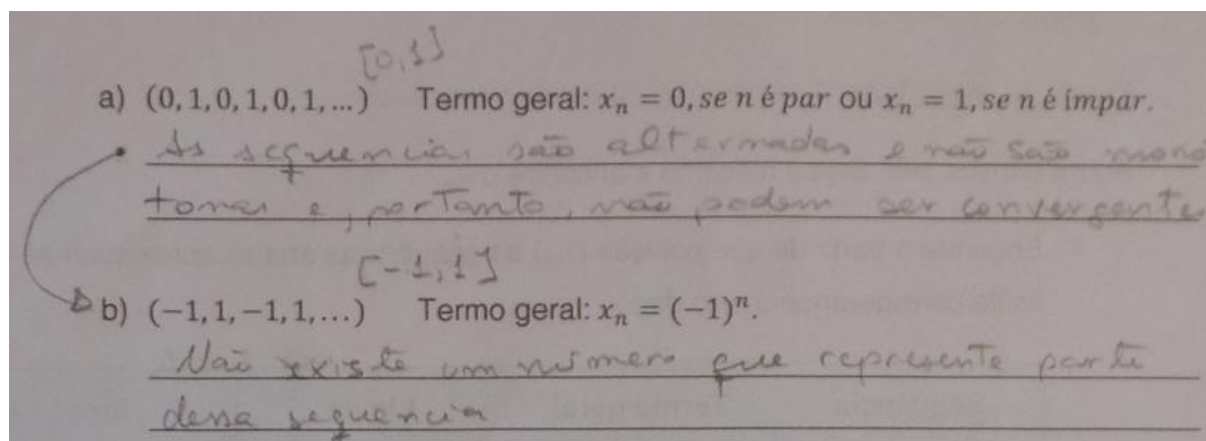 [0,1]
a) (0, 1, 0, 1, 0, 1, ...) Termo geral: xₙ = 0, se n é par ou xₙ = 1, se n é ímpar.
As sequencias são alternadas e não são mono
tonas e, portanto, não podem ser convergentes
[-1,1]
b) (-1, 1, -1, 1, ...) Termo geral: xₙ = (-1)ⁿ.
Não existe um número que represente parte
dessa sequencia